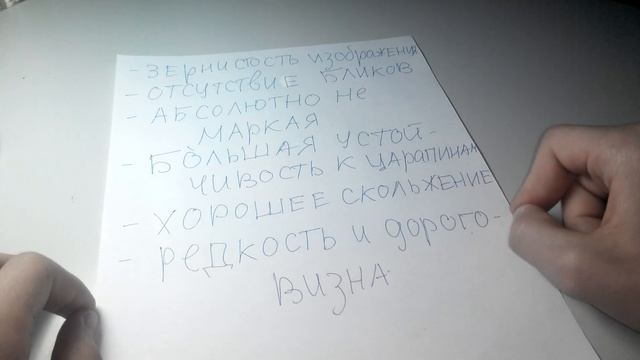 - ЗЕРНИСТОСТЬ ИЗОБРАЖЕНИЯ
- ОТСУТСТВИЕ БЛИКОВ
- АБСОЛЮТНО НЕ
МАРКАЯ
- БОЛЬШАЯ УСТОЙ-
ЧИВОСТЬ К ЦАРАПИНАМ
- ХОРОШЕЕ СКОЛЬЖЕНИЕ
- РЕДКОСТЬ И ДОРОГО-
ВИЗНА